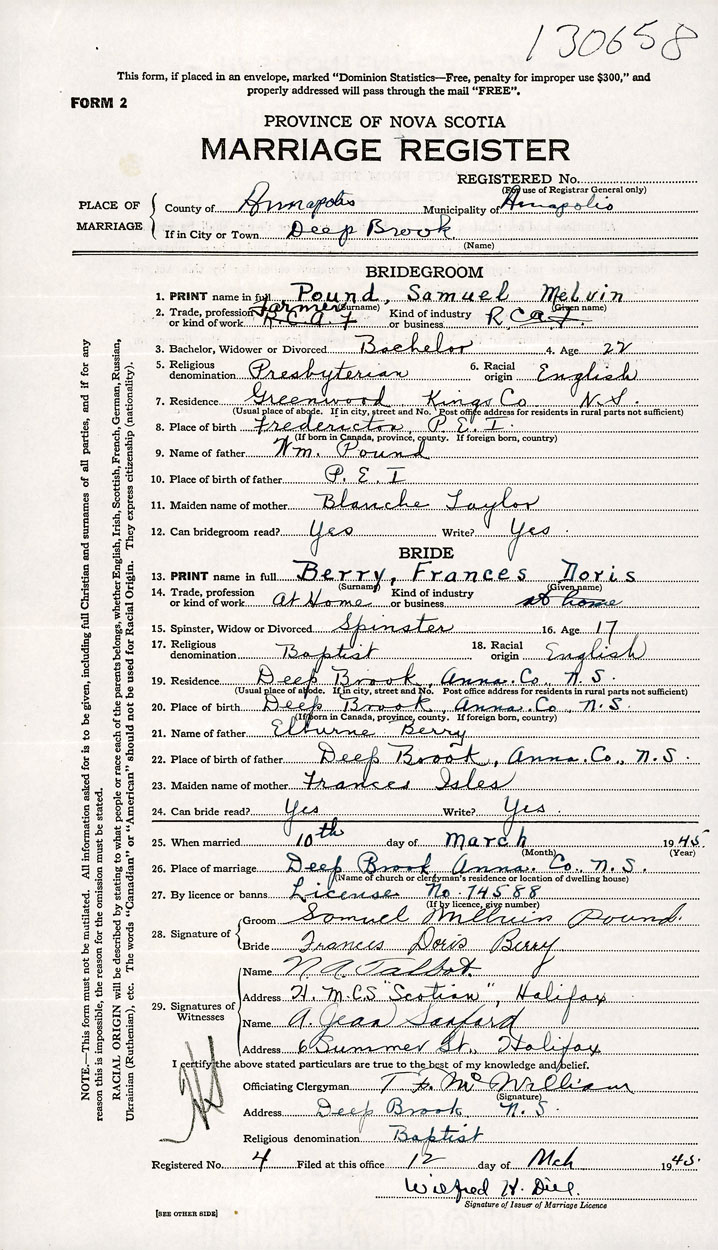 130658
This form, if placed in an envelope, marked "Dominion Statistics—Free, penalty for improper use $300," and
properly addressed will pass through the mail "FREE".
FORM 2
PROVINCE OF NOVA SCOTIA
MARRIAGE REGISTER
REGISTERED No.
(For use of Registrar General only)
PLACE OF MARRIAGE
County of Annapolis Municipality of Annapolis
If in City or Town Deep Brook
(Name)
BRIDEGROOM
1. PRINT name in full Pound, Samuel Melvin
(Surname) (Given name)
Farmer
2. Trade, profession or kind of work R.C.A.F Kind of industry or business R C A F
3. Bachelor, Widower or Divorced Bachelor 4. Age 22
5. Religious denomination Presbyterian 6. Racial origin English
7. Residence Greenwood Kings Co N.S.
(Usual place of abode. If in city, street and No. Post office address for residents in rural parts not sufficient)
8. Place of birth Fredericton, P.E.I.
(If born in Canada, province, county. If foreign born, country)
9. Name of father Wm. Pound
10. Place of birth of father P.E.I
11. Maiden name of mother Blanche Taylor
12. Can bridegroom read? Yes Write? Yes.
BRIDE
13. PRINT name in full Berry, Frances Doris
(Surname) (Given name)
14. Trade, profession or kind of work At Home Kind of industry or business at home
15. Spinster, Widow or Divorced Spinster 16. Age 17
17. Religious denomination Baptist 18. Racial origin English
19. Residence Deep Brook, Anna. Co, N.S.
(Usual place of abode. If in city, street and No. Post office address for residents in rural parts not sufficient)
20. Place of birth Deep Brook, Anna. Co N.S.
(If born in Canada, province, county. If foreign born, country)
21. Name of father Elburne Berry
22. Place of birth of father Deep Brook, Anna. Co., N.S.
23. Maiden name of mother Frances Isles
24. Can bride read? Yes Write? Yes.
25. When married 10th day of March 1945.
(Month) (Year)
26. Place of marriage Deep Brook Anna. Co., N.S.
(Name of church or clergyman's residence or location of dwelling house)
27. By licence or banns License No. 74588
(If by licence, give number)
28. Signature of
Groom Samuel Pound.
Bride Frances Doris Berry
29. Signatures of Witnesses
Name Talbot.
Address H.M.C.S "Scotian", Halifax
Name A. Jean Sanford
Address 6 Summer St., Halifax
I certify the above stated particulars are true to the best of my knowledge and belief.
Officiating Clergyman Mc William
(Signature)
Address Deep Brook N.S.
Religious denomination Baptist
Registered No. 4 Filed at this office 12 day of Mch 1945.
Wilfred H. Dill.
Signature of Issuer of Marriage Licence
[SEE OTHER SIDE]
NOTE.—This form must not be mutilated. All information asked for is to be given, including full Christian and surnames of all parties, and if for any
reason this is impossible, the reason for the omission must be stated.
RACIAL ORIGIN will be described by stating to what people or race each of the parents belongs, whether English, Irish, Scottish, French, German, Russian,
Ukrainian (Ruthenian), etc. The words "Canadian" or "American" should not be used for Racial Origin. They express citizenship (nationality).